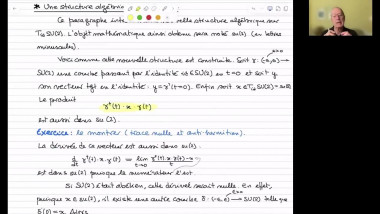 * Une structure algébri
Ce paragraphe inte velle structure algébrique sur
T_𝟙 SU(2). L'objet mathématique ainsi obtenu sera noté su(2) (en lettres
minuscules).
Voici comme cette nouvelle structure est construite. Soit γ: (-ε,ε) →
SU(2) une courbe passant par l'identité 𝟙 ∈ SU(2) en t=0 et soit y
son vecteur tgt en l'identité : y = γ'(t=0). Enfin soit x ∈ T_𝟙 SU(2) = su(2)
Le produit
γ†(t) · x γ(t)
est aussi dans su(2).
Exercice: le montrer (trace nulle et anti-hermitien).
La dérivée de ce vecteur est aussi dans su(2).
d/dt γ†(t) · x · γ(t) = lim t→0 γ†(t) · x γ(t) - x / t
est dans su(2) puisque le numérateur l'est.
Si SU(2) était abélien, cette dérivée serait nulle. En effet,
puisque x ∈ su(2), il existe une autre courbe δ: (-ε,ε) → SU(2) telle que
δ'(0) = x. Alors